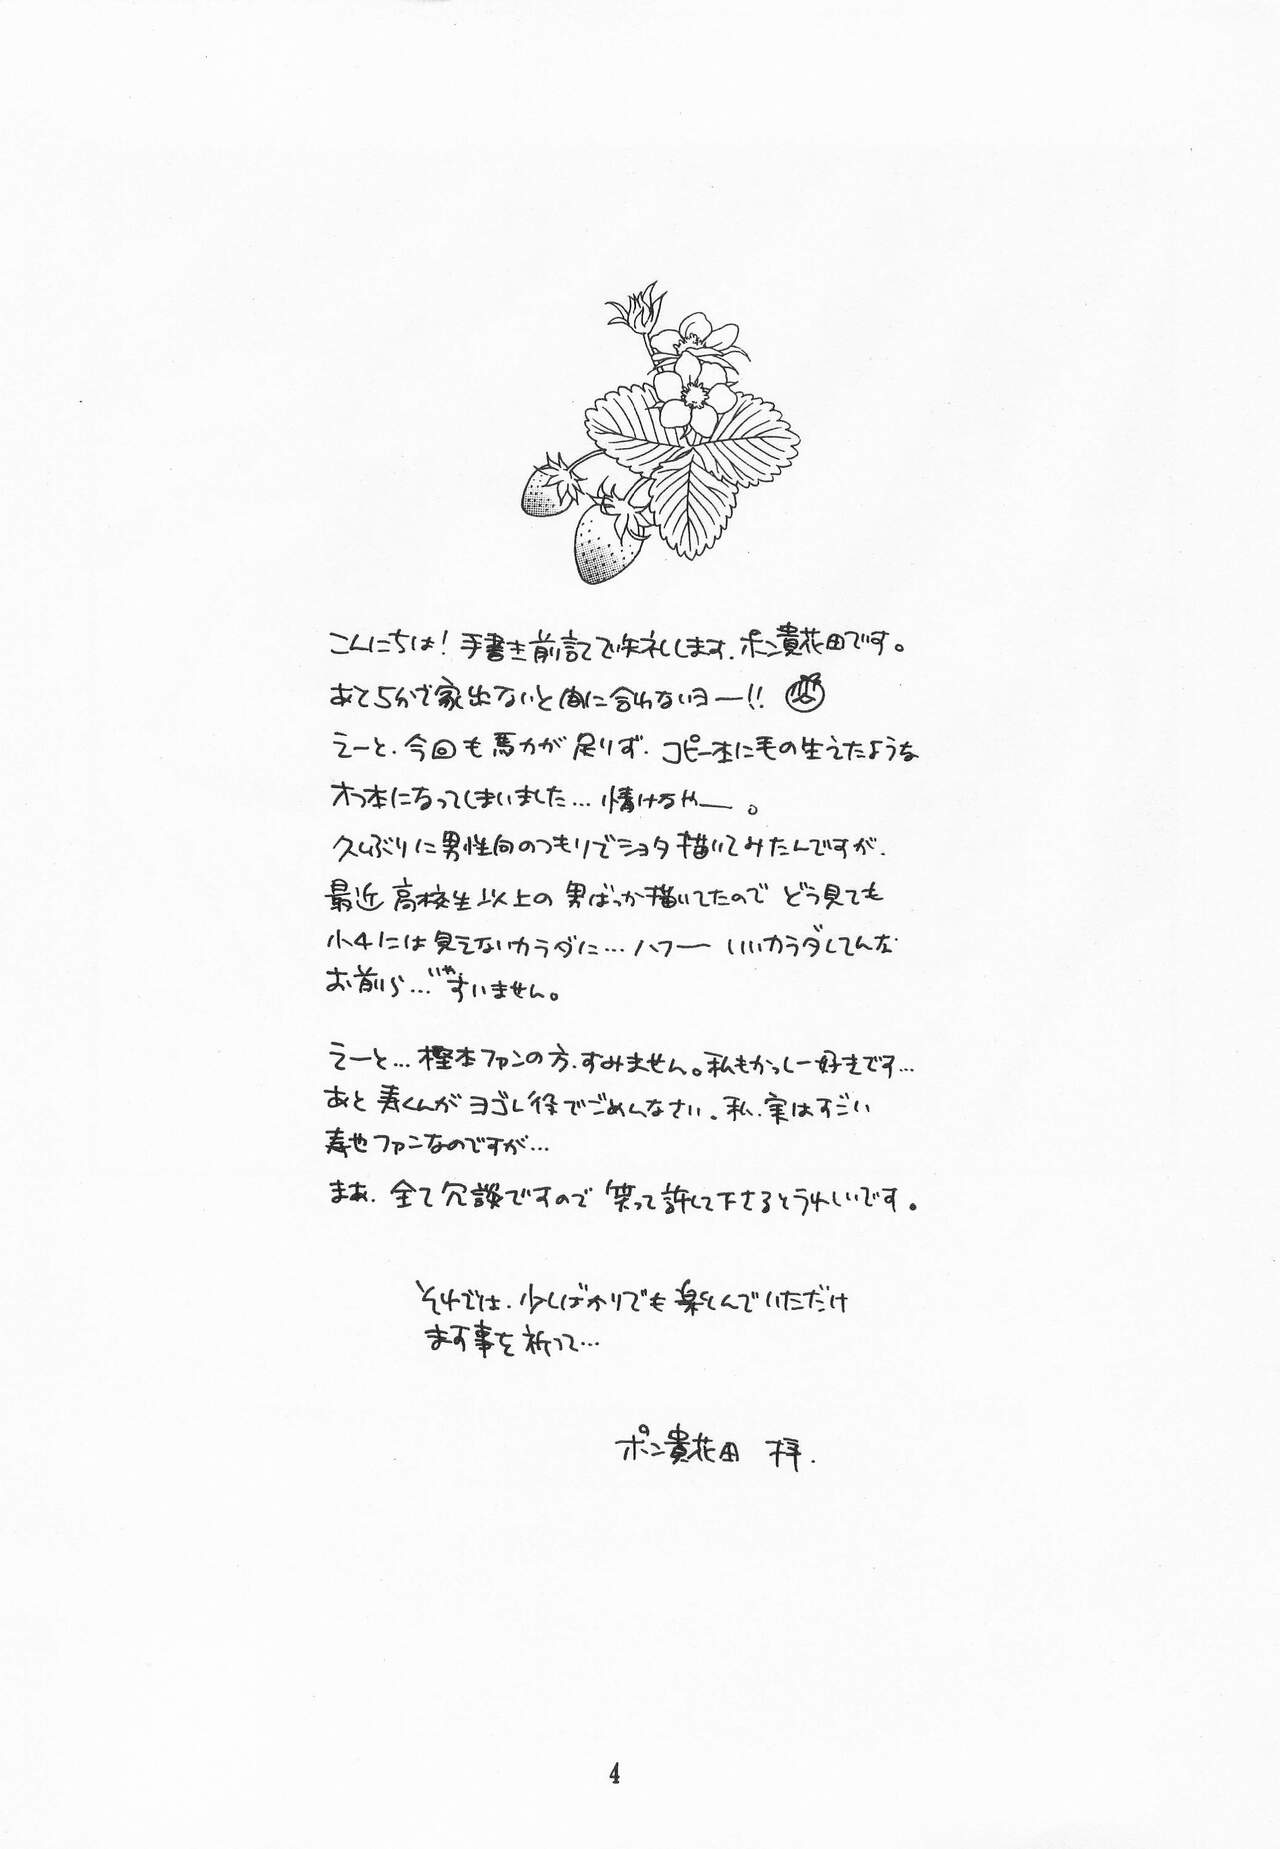 こんにちは！手書き前記で失礼します、ポン貴花田です。
あと5分で家出ないと間に合わないヨー!!
えーと、今回も馬力が足りず、コピー本に毛の生えたような
オフ本になってしまいました…情けなやー。
久しぶりに男性向のつもりでショタ描いてみたんですが、
最近高校生以上の男ばっか描いてたのでどう見ても
小4には見えないカラダに…ハフー いいカラダしてんな
お前ら…いや、すいません。
えーと…樫本ファンの方、すみません。私もかっしー好きです…
あと寿くんがヨゴレ役でごめんなさい。私、実はすごい
寿也ファンなのですが…
まあ、全て冗談ですので笑って許して下さるとうれしいです。
それでは、少しばかりでも楽しんでいただけ
ます事を祈って…
ポン貴花田 梓.
4